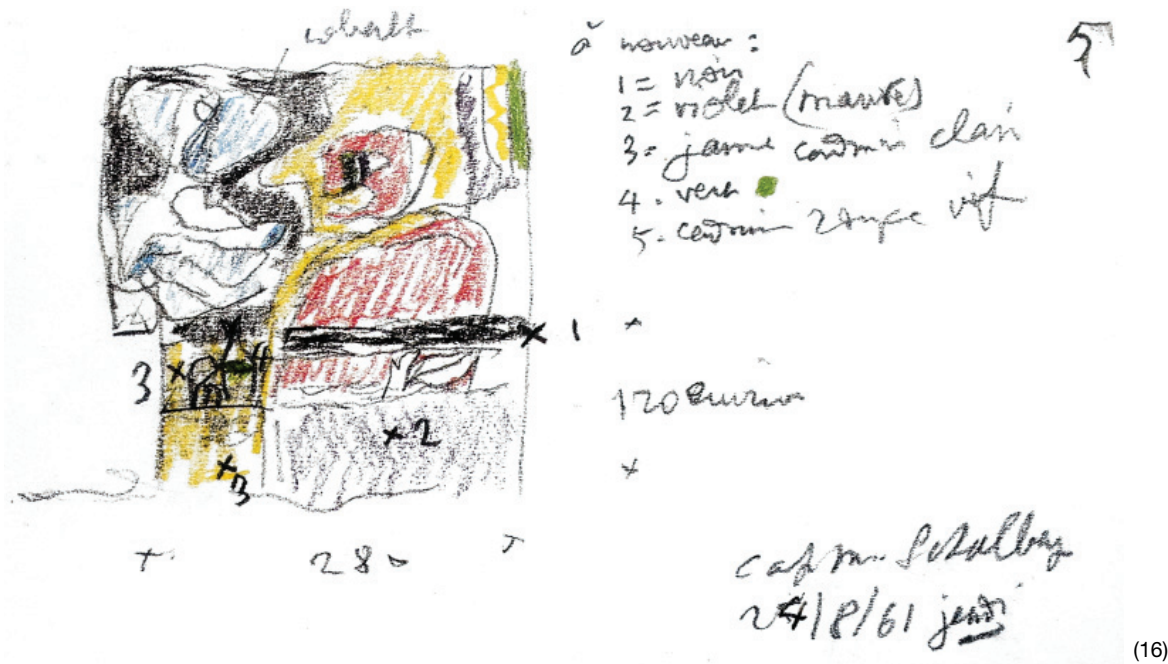 cobalt
à nouveau :
5
1 = noir
2 = violet (mauve)
3 = jaune cadmium clair
4 = vert
5 = cadmium rouge vif
1
3
2
3
120 environ
280
cap m.
24/8/61 jeudi
(16)